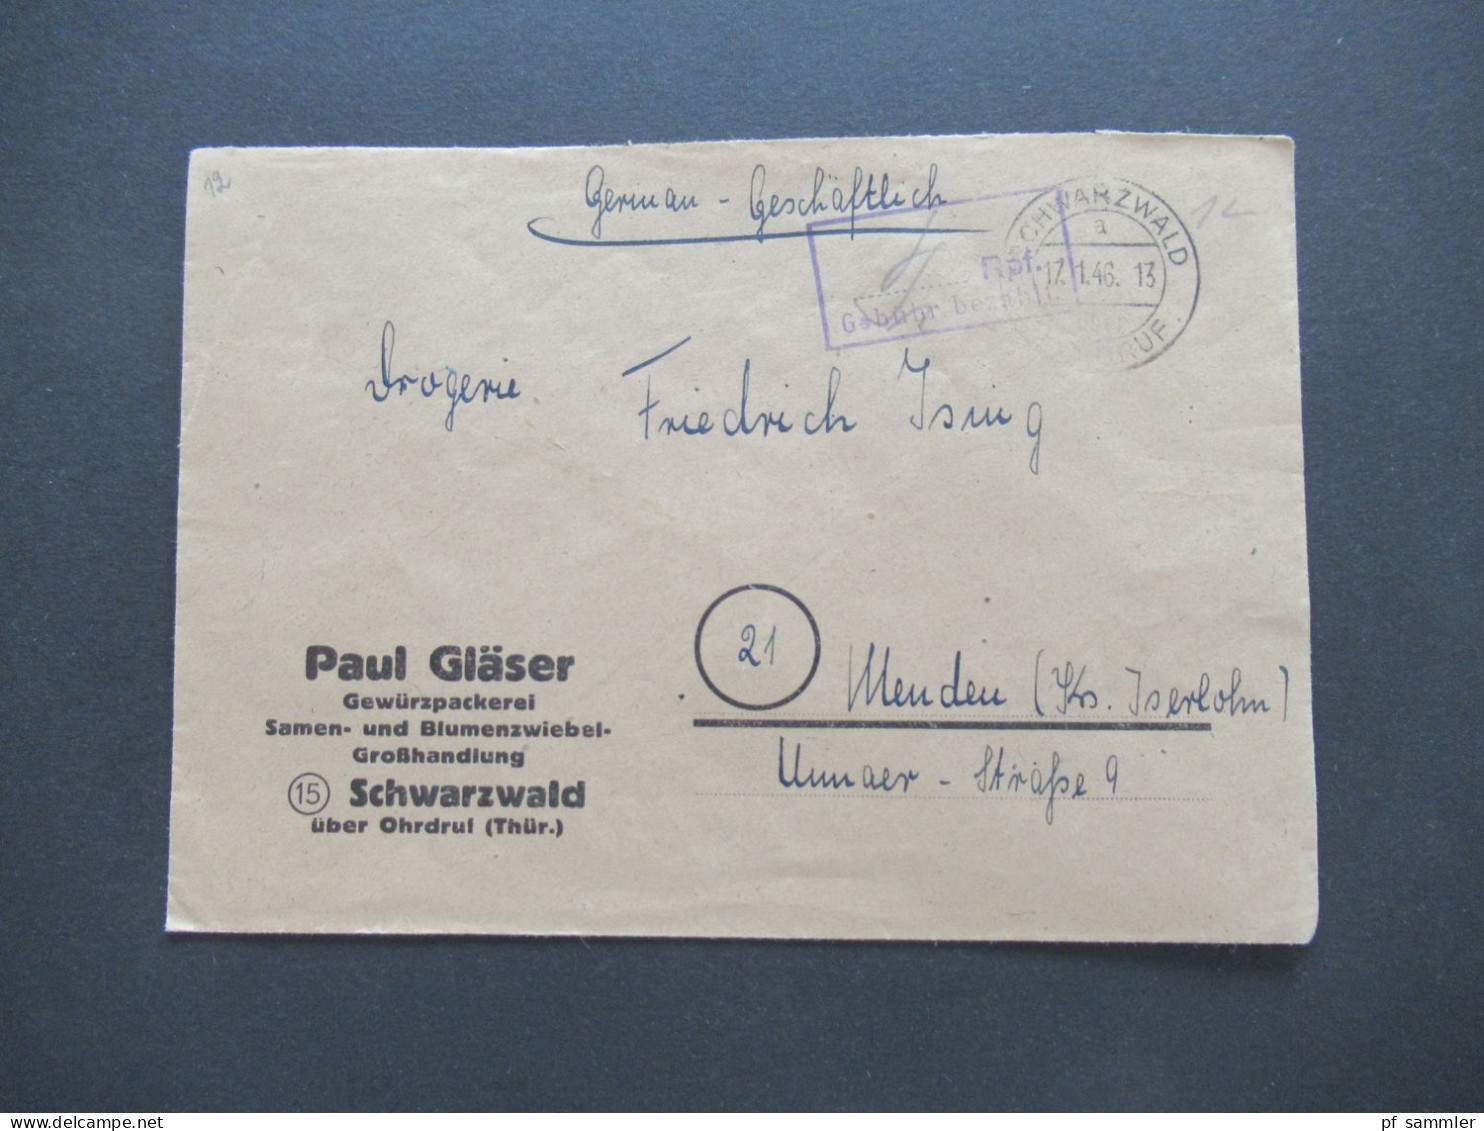 12
German - Geschäftlich
Rpf.
Gebühr bezahlt
SCHWARZWALD
a
17.1.46. 13
RUF.
12
Drogerie Friedrich Ising
21 Menden (Krs. Iserlohn)
Unnaer - Straße 9
Paul Gläser
Gewürzpackerei
Samen- und Blumenzwiebel-
Großhandlung
15 Schwarzwald
über Ohrdruf (Thür.)
pf_sammler